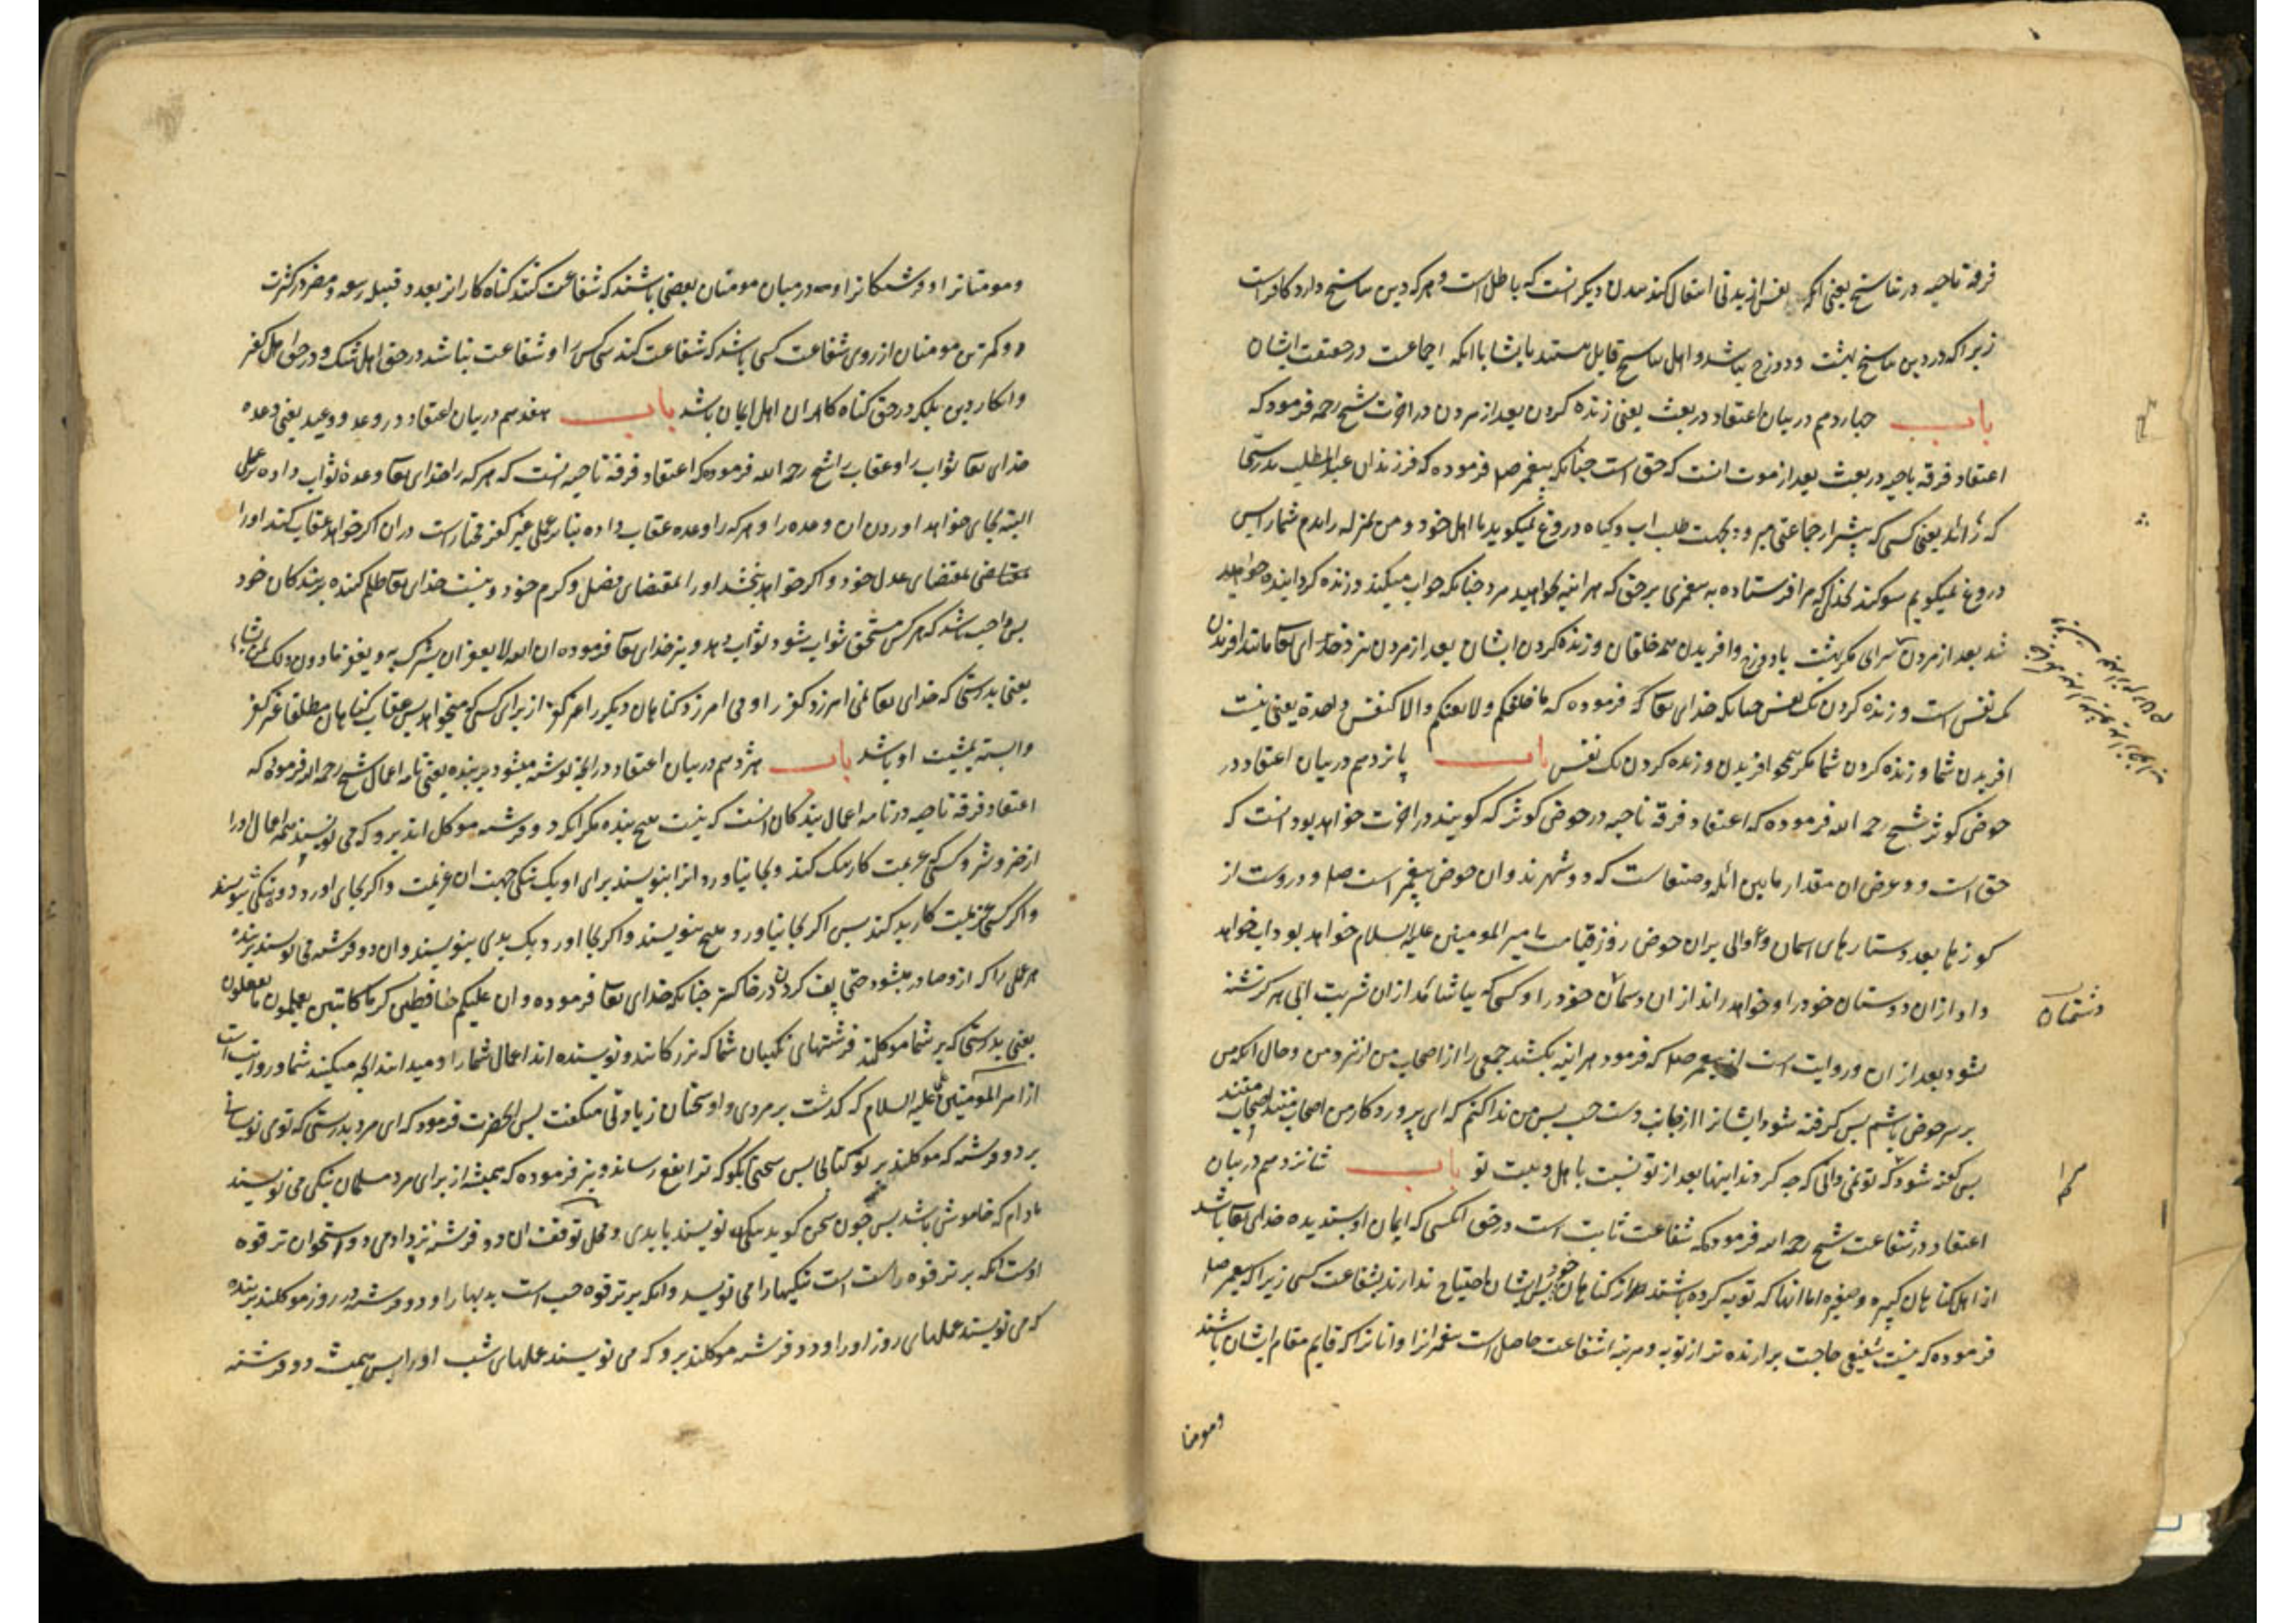 فرقهٔ ناجیه در تناسخ یعنی انکه نفس از بدنی انتقال کند ببدن دیکر انست که باطل است و هر که دین تناسخ دارد کافر است
زیرا که در دین تناسخ بهشت و دوزخ نباشد و اهل تناسخ قایل نیستند باینها با انکه اجماعت در حقیقت ایشان
باب چهاردهم در بیان اعتقاد در بعث یعنی زنده کردن بعد از مردن در اخرت شیخ رحمه فرمود که
اعتقاد فرقه ناجیه در بعث بعد از موت انست که حق است چنانکه پیغمبر صلم فرموده که فرزندان عبدالمطلب بدرستی
که رائد یعنی کسی که پیشتر از جماعتی میرود بجهت طلب اب و کیاه دروغ نمیکوید با اهل خود و من بمنزله رایدم شما را پس
دروغ نمیکویم سوکند بخدای که مرا فرستاده به پیغمبری بر حق که هراینه خواهید مرد چنانکه خواب میکنید و زنده کردانیده خواهید
شد بعد از مردن سرای مکر بهشت یا دوزخ و افریدن همه خلقان و زنده کردن ایشان بعد از مردن نزد خدای تعا مانند افریدن
یک نفس است و زنده کردن یک نفس چنانکه خدای تعا که فرموده که ما خلقکم و لا بعثکم و الا کنفس واحدة یعنی نیست
افریدن شما و زنده کردن شما مکر همچو افریدن و زنده کردن یک نفس باب پانزدهم در بیان اعتقاد در
حوض کوثر شیخ رحمه الله فرموده که اعتقاد فرقه ناجیه در حوض کوثر که کویند در اخرت خواهد بود انست که
حق است و و عرض ان مقدار مابین ائله و صنعاست که دو شهرند و ان حوض پیغمبر است صلم و دروست از
کوزها بعدد ستارهای اسمان و والی بران حوض روز قیامت امیر المومنین علیه السلام خواهد بود اب خواهد
داد از ان دوستان خود را و خواهد راند از ان دشمنان خود را و کسی که بیاشامد از ان شربت ابی هرکز تشنه
دشمنان
نشود بعد از ان و روایت است از پیغمبر صلم که فرمود هراینه بکشند جمعی را از اصحاب من از نزد من و حال انکه من
بر سر حوض باشم پس کرفته شود ایشانرا از جانب دست چپ پس من ندا کنم که ای پروردکار من اصحاب منند اصحاب منند
پس کفته شود که تو نمی دانی که چه کردند اینها بعد از تو نسبت باهل و بیت تو باب شانزدهم در بیان
اعتقاد در شفاعت شیخ رحمه الله فرموده که شفاعت ثابت است در حق انکسی که ایمان او پسندیده خدای تعا باشد
از اهل کناهان کبیره و صغیره اما انها که توبه کرده باشند از کناهان خود پس ایشان احتیاج ندارند بشفاعت کسی زیرا که پیغمبر صلم
فرموده که نیست شفیعی حاجت برارنده تر از توبه و مرتبهٔ شفاعت حاصل است پیغمبرانرا و انانرا که قایم مقام ایشان باشند
ومومنا
ومومنانرا و فرشتکانرا و در میان مومنان بعضی باشند که شفاعت کنند کناه کارانرا بعدد قبیله ربیعه و مضر در کثرت
و کمترین مومنان از روی شفاعت کسی باشد که شفاعت کند سی کس را و شفاعت نباشد در حق اهل شک و در حق اهل کفر
و انکار دین بلکه در حق کناه کاران اهل ایمان باشد باب هفدهم در بیان اعتقاد در وعد و وعید یعنی وعده
خدای تعا ثواب را و عقاب را شیخ رحمه الله فرموده که اعتقاد فرقهٔ ناجیه انست که هر که را خدای تعا وعدهٔ ثواب داده بر عملی
البته بجای خواهد اوردن ان وعده را و هر که را وعده عقاب داده بنابر عملی غیر کفر مختار است در ان اکر خواهد عقاب کند او را
بمقتضای عدل خود و اکر خواهد بخشد او را بمقتضای فضل و کرم خود و نیست خدای تعا ظلم کننده بر بندکان خود
پس واجب باشد که هر کس مستحق ثواب شود ثواب دهد و نیز خدای تعا فرموده ان الله لا یغفر ان یشرک به و یغفر ما دون ذلک لمن یشاء
یعنی بدرستی که خدای تعا نمی امرزد کفر را و می امرزد کناهان دیکر را غیر کفر از برای کسی که میخواهد پس عقاب کناهان مطلقا غیر کفر
وابسته بمشیت او باشد باب هژدهم در بیان اعتقاد در انچه نوشته میشود بر بنده یعنی نامه اعمال شیخ رحمه الله فرموده که
اعتقاد فرقهٔ ناجیه در نامه اعمال بندکان انست که نیست هیچ بنده مکر انکه دو فرشته موکل اند برو که می نویسند همه اعمال او را
از خیر و شر و کسی که عزیمت کار نیک کند و بجا نیاورد انرا بنویسند برای او یک نیکی جهت ان عزیمت و اکر بجای اورد ده نیکی بنویسند
و اکر کسی عزیمت کار بد کند پس اکر بجا نیاورد هیچ ننویسند و اکر بجا اورد یک بدی بنویسند و ان دو فرشته می نویسند بر بنده
هر عملی را که ازو صادر میشود حتی پف کردن در خاکستر چنانکه خدای تعا فرموده و ان علیکم لحافظین کراما کاتبین یعلمون ما تفعلون
یعنی بدرستی که بر شما موکلند فرشتهای نکهبان شما که بزرکانند و نویسنده اند اعمال شما را و میدانند انچه میکنید شما و روایت است
از امیر المومنین علی علیه السلام که کذشت بر مردی و او سخنان زیادتی میکفت پس انحضرت فرمود که ای مرد بدرستی که تو می نویسانی
بر دو فرشته که موکلند بر تو کتابی پس سخنی بکو که ترا نفع رساند و نیز فرموده که همیشه از برای مرد مسلمان نیکی می نویسند
مادام که خاموش باشد پس چون سخن کوید نیکی نویسند یا بدی و محل توقف ان دو فرشته نزد ادمی دو استخوان ترقوه
اوست انکه بر ترقوه راست است نیکیها را می نویسد و انکه بر ترقوه چپ است بدیها را و دو فرشته در روز موکلند بر بنده
که می نویسند عملهای روز او را و دو فرشته موکلند برو که می نویسند عملهای شب او را پس همیشه دو فرشته